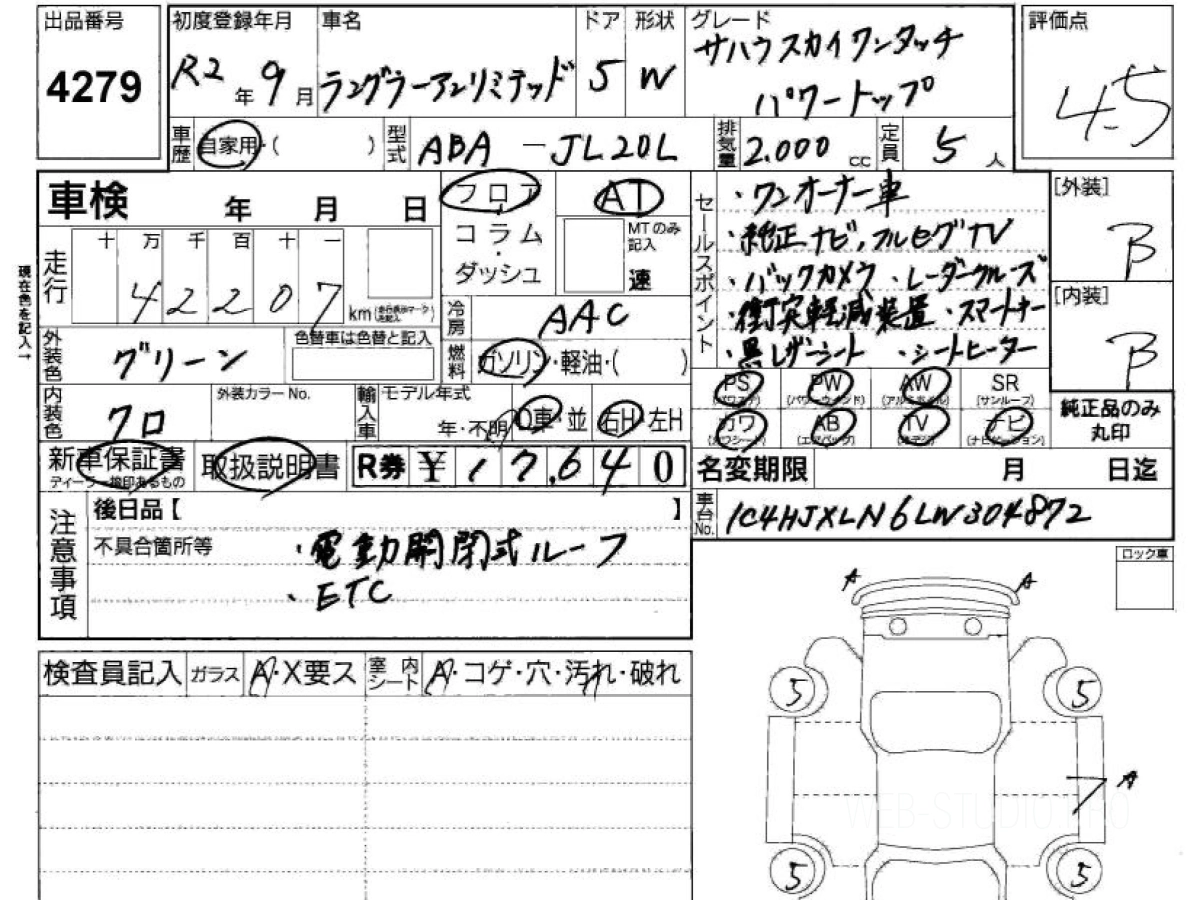 出品番号
4279
初度登録年月
R2年9月
車名
ラングラーアンリミテッド
ドア
5
形状
W
グレード
サハラ スカイワンタッチ
パワートップ
評価点
4.5
車歴
自家用・( )
型式
ABA - JL20L
排気量
2.000 cc
定員
5人
車検 年 月 日
フロア
コラム
・
ダッシュ
AT
MTのみ
記入
速
セールスポイント
・ワンオーナー車
・純正ナビ、フルセグTV
・バックカメラ ・レーダークルーズ
・衝突軽減装置 ・スマートキー
・黒レザーシート ・シートヒーター
[外装]
B
[内装]
B
現在色を記入→
走行
十 万 千 百 十 一
4 2 2 0 7
km
冷房
AAC
外装色
グリーン
色替車は色替と記入
燃料
ガソリン・軽油・( )
内装色
クロ
外装カラーNo.
輸入車
モデル年式
年・不明
D車・並
右H・左H
PS
(パワステ)
PW
(パワーウインド)
AW
(アルミホイル)
SR
(サンルーフ)
カワ
(カワシート)
AB
(エアバック)
TV
ナビ
(ナビゲーション)
純正品のみ
丸印
新車保証書
ディーラー捺印あるもの
取扱説明書
R券
¥17,640
名変期限 月 日迄
車台No.
1C4HJXLN6LW304872
注意事項
後日品【 】
不具合箇所等
・電動開閉式ルーフ
・ETC
ロック車
検査員記入
ガラス
A・X要ス
室内シート
A・コゲ・穴・汚れ・破れ
A
A
5
5
A
5
5
WEB-STUDIO.PRO